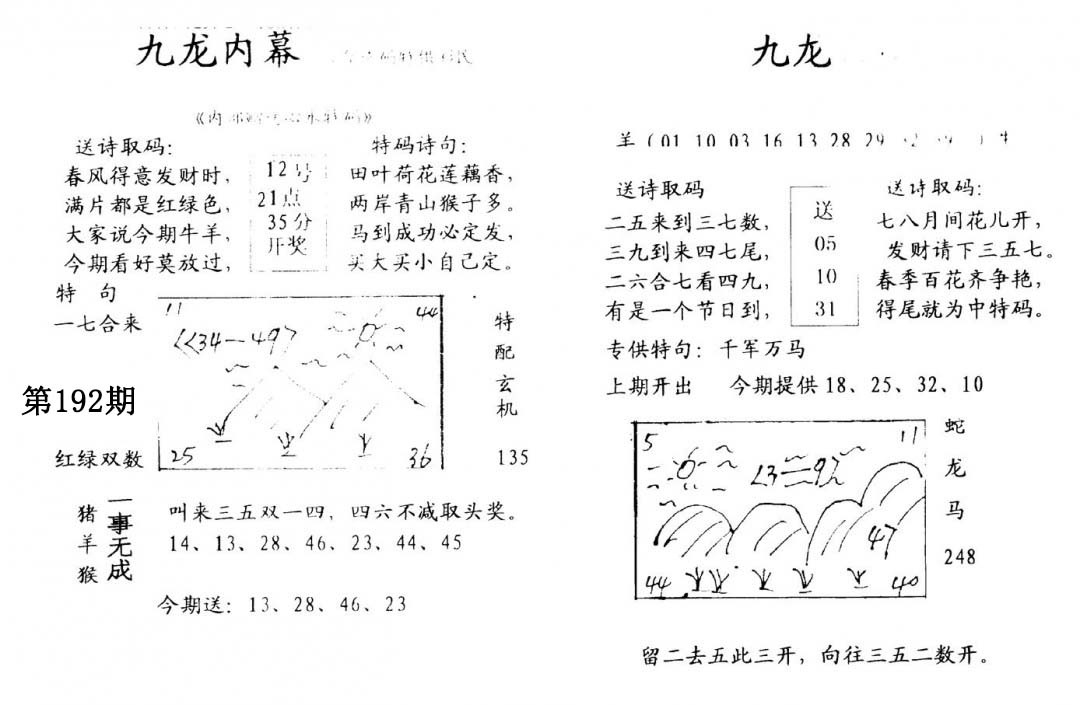 九龙内幕
送诗取码：
春风得意发财时，
满片都是红绿色，
大家说今期牛羊，
今期看好莫放过，
12号
21点
35分
开奖
特码诗句：
田叶荷花莲藕香，
两岸青山猴子多。
马到成功必定发，
买大买小自己定。
特 句
一七合来
第192期
红绿双数
11
44
34—49
25
36
特
配
玄
机
135
猪
羊
猴
一事无成
叫来三五双一四，四六不减取头奖。
14、13、28、46、23、44、45
今期送：13、28、46、23
九龙
羊（01 10 03 16 13 28 29
送诗取码
二五来到三七数，
三九到来四七尾，
二六合七看四九，
有是一个节日到，
送
05
10
31
送诗取码：
七八月间花儿开，
发财请下三五七。
春季百花齐争艳，
得尾就为中特码。
专供特句：千军万马
上期开出 今期提供18、25、32、10
5
11
47
44
40
蛇
龙
马
248
留二去五此三开，向往三五二数开。